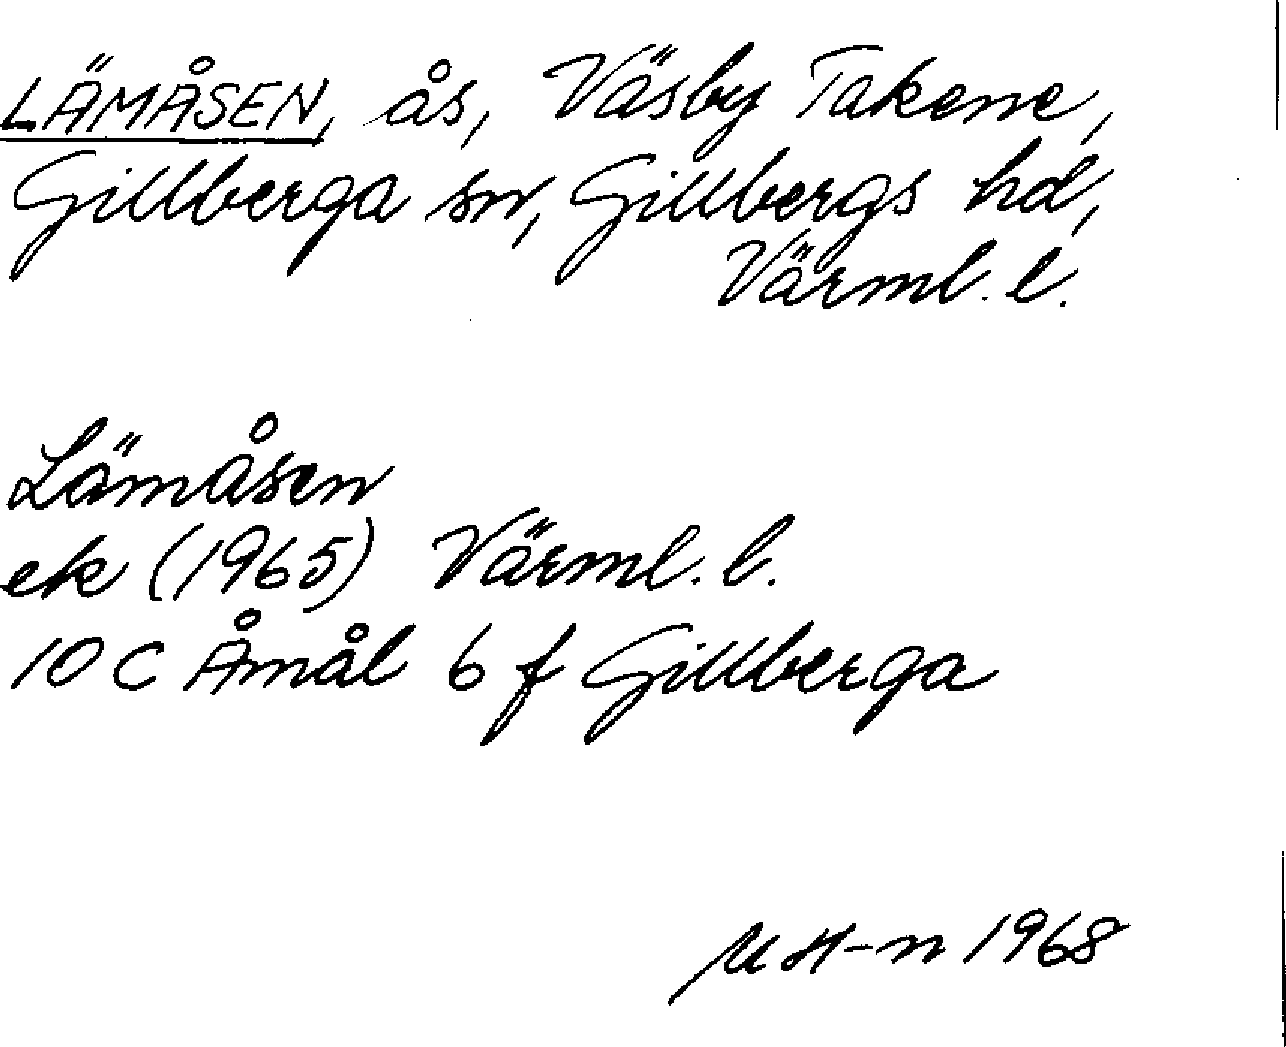 LÄMÅSEN, ås, Väsby Takene,
Gillberga sn, Gillbergs hd,
Värml. l.
Lämåsen
ek (1965) Värml. l.
10 C Åmål 6 f Gillberga
M H-n 1968